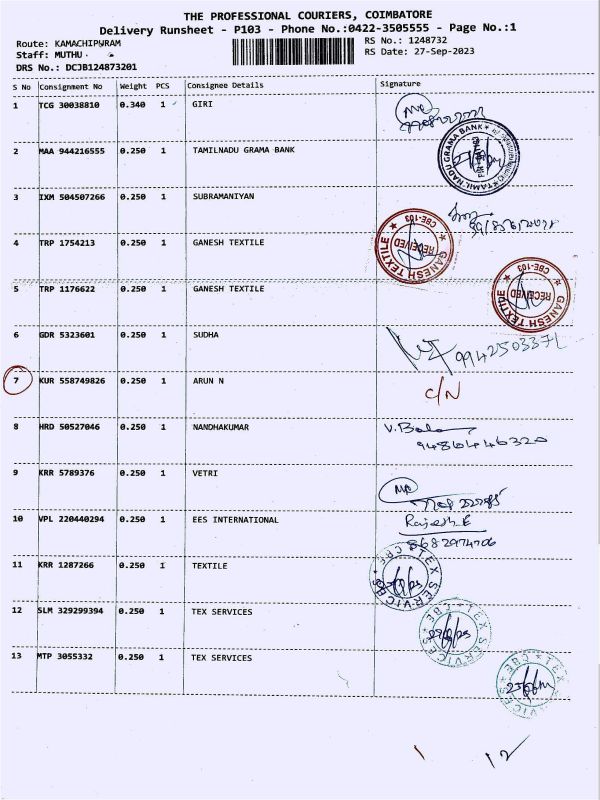 THE PROFESSIONAL COURIERS, COIMBATORE
Delivery Runsheet - P103 - Phone No.:0422-3505555 - Page No.:1
Route: KAMACHIPURAM
RS No.: 1248732
Staff: MUTHU
RS Date: 27-Sep-2023
DRS No.: DCJB124873201
S No Consignment No Weight PCS Consignee Details Signature
1 TCG 30038810 0.340 1 GIRI
2 MAA 944216555 0.250 1 TAMILNADU GRAMA BANK
TAMIL NADU GRAMA BANK
3 IXM 504507266 0.250 1 SUBRAMANIYAN
4 TRP 1754213 0.250 1 GANESH TEXTILE
GANESH TEXTILE RECEIVED CBE-103
5 TRP 1176622 0.250 1 GANESH TEXTILE
GANESH TEXTILE RECEIVED CBE-103
6 GDR 5323601 0.250 1 SUDHA
7 KUR 558749826 0.250 1 ARUN N C/N
8 HRD 50527046 0.250 1 NANDHAKUMAR V. Bala
9486446320
9 KRR 5789376 0.250 1 VETRI
10 VPL 220440294 0.250 1 EES INTERNATIONAL Rajesh E
8682974706
11 KRR 1287266 0.250 1 TEXTILE
TEX SERVICES CBE
12 SLM 329299394 0.250 1 TEX SERVICES
TEX SERVICES CBE
13 MTP 3055332 0.250 1 TEX SERVICES
TEX SERVICES CBE
1 12